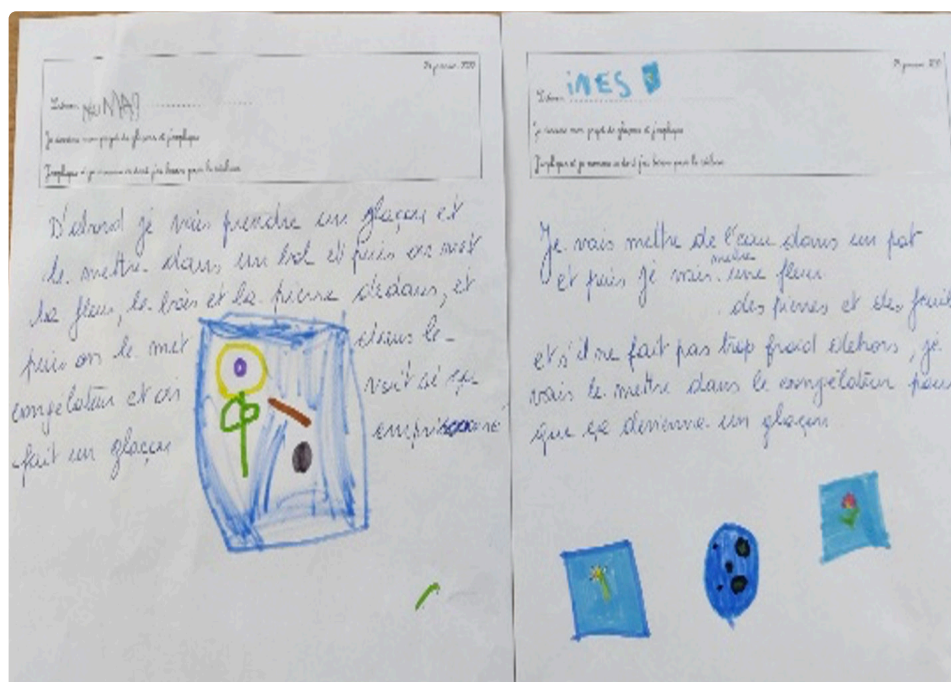 24 janvier
Prénom NouMAN
Je dessine mon projet de glaçons et j'explique
J'explique et je nomme ce dont j'ai besoin pour le réaliser
D'abord je vais prendre un glaçon et
le mettre dans un bol et puis on met
la fleur, le bois et la pierre dedans, et
puis on le met dans le
congélateur et on voit si ça
fait un glaçon emprisonné
24 janvier
Prénom iNES
Je dessine mon projet de glaçons et j'explique
J'explique et je nomme ce dont j'ai besoin pour le réaliser
Je vais mettre de l'eau dans un pot
et puis je vais mettre une fleur
des pierres et des
et s'il ne fait pas trop froid dehors, je
vais le mettre dans le congélateur pour
que ça devienne un glaçon